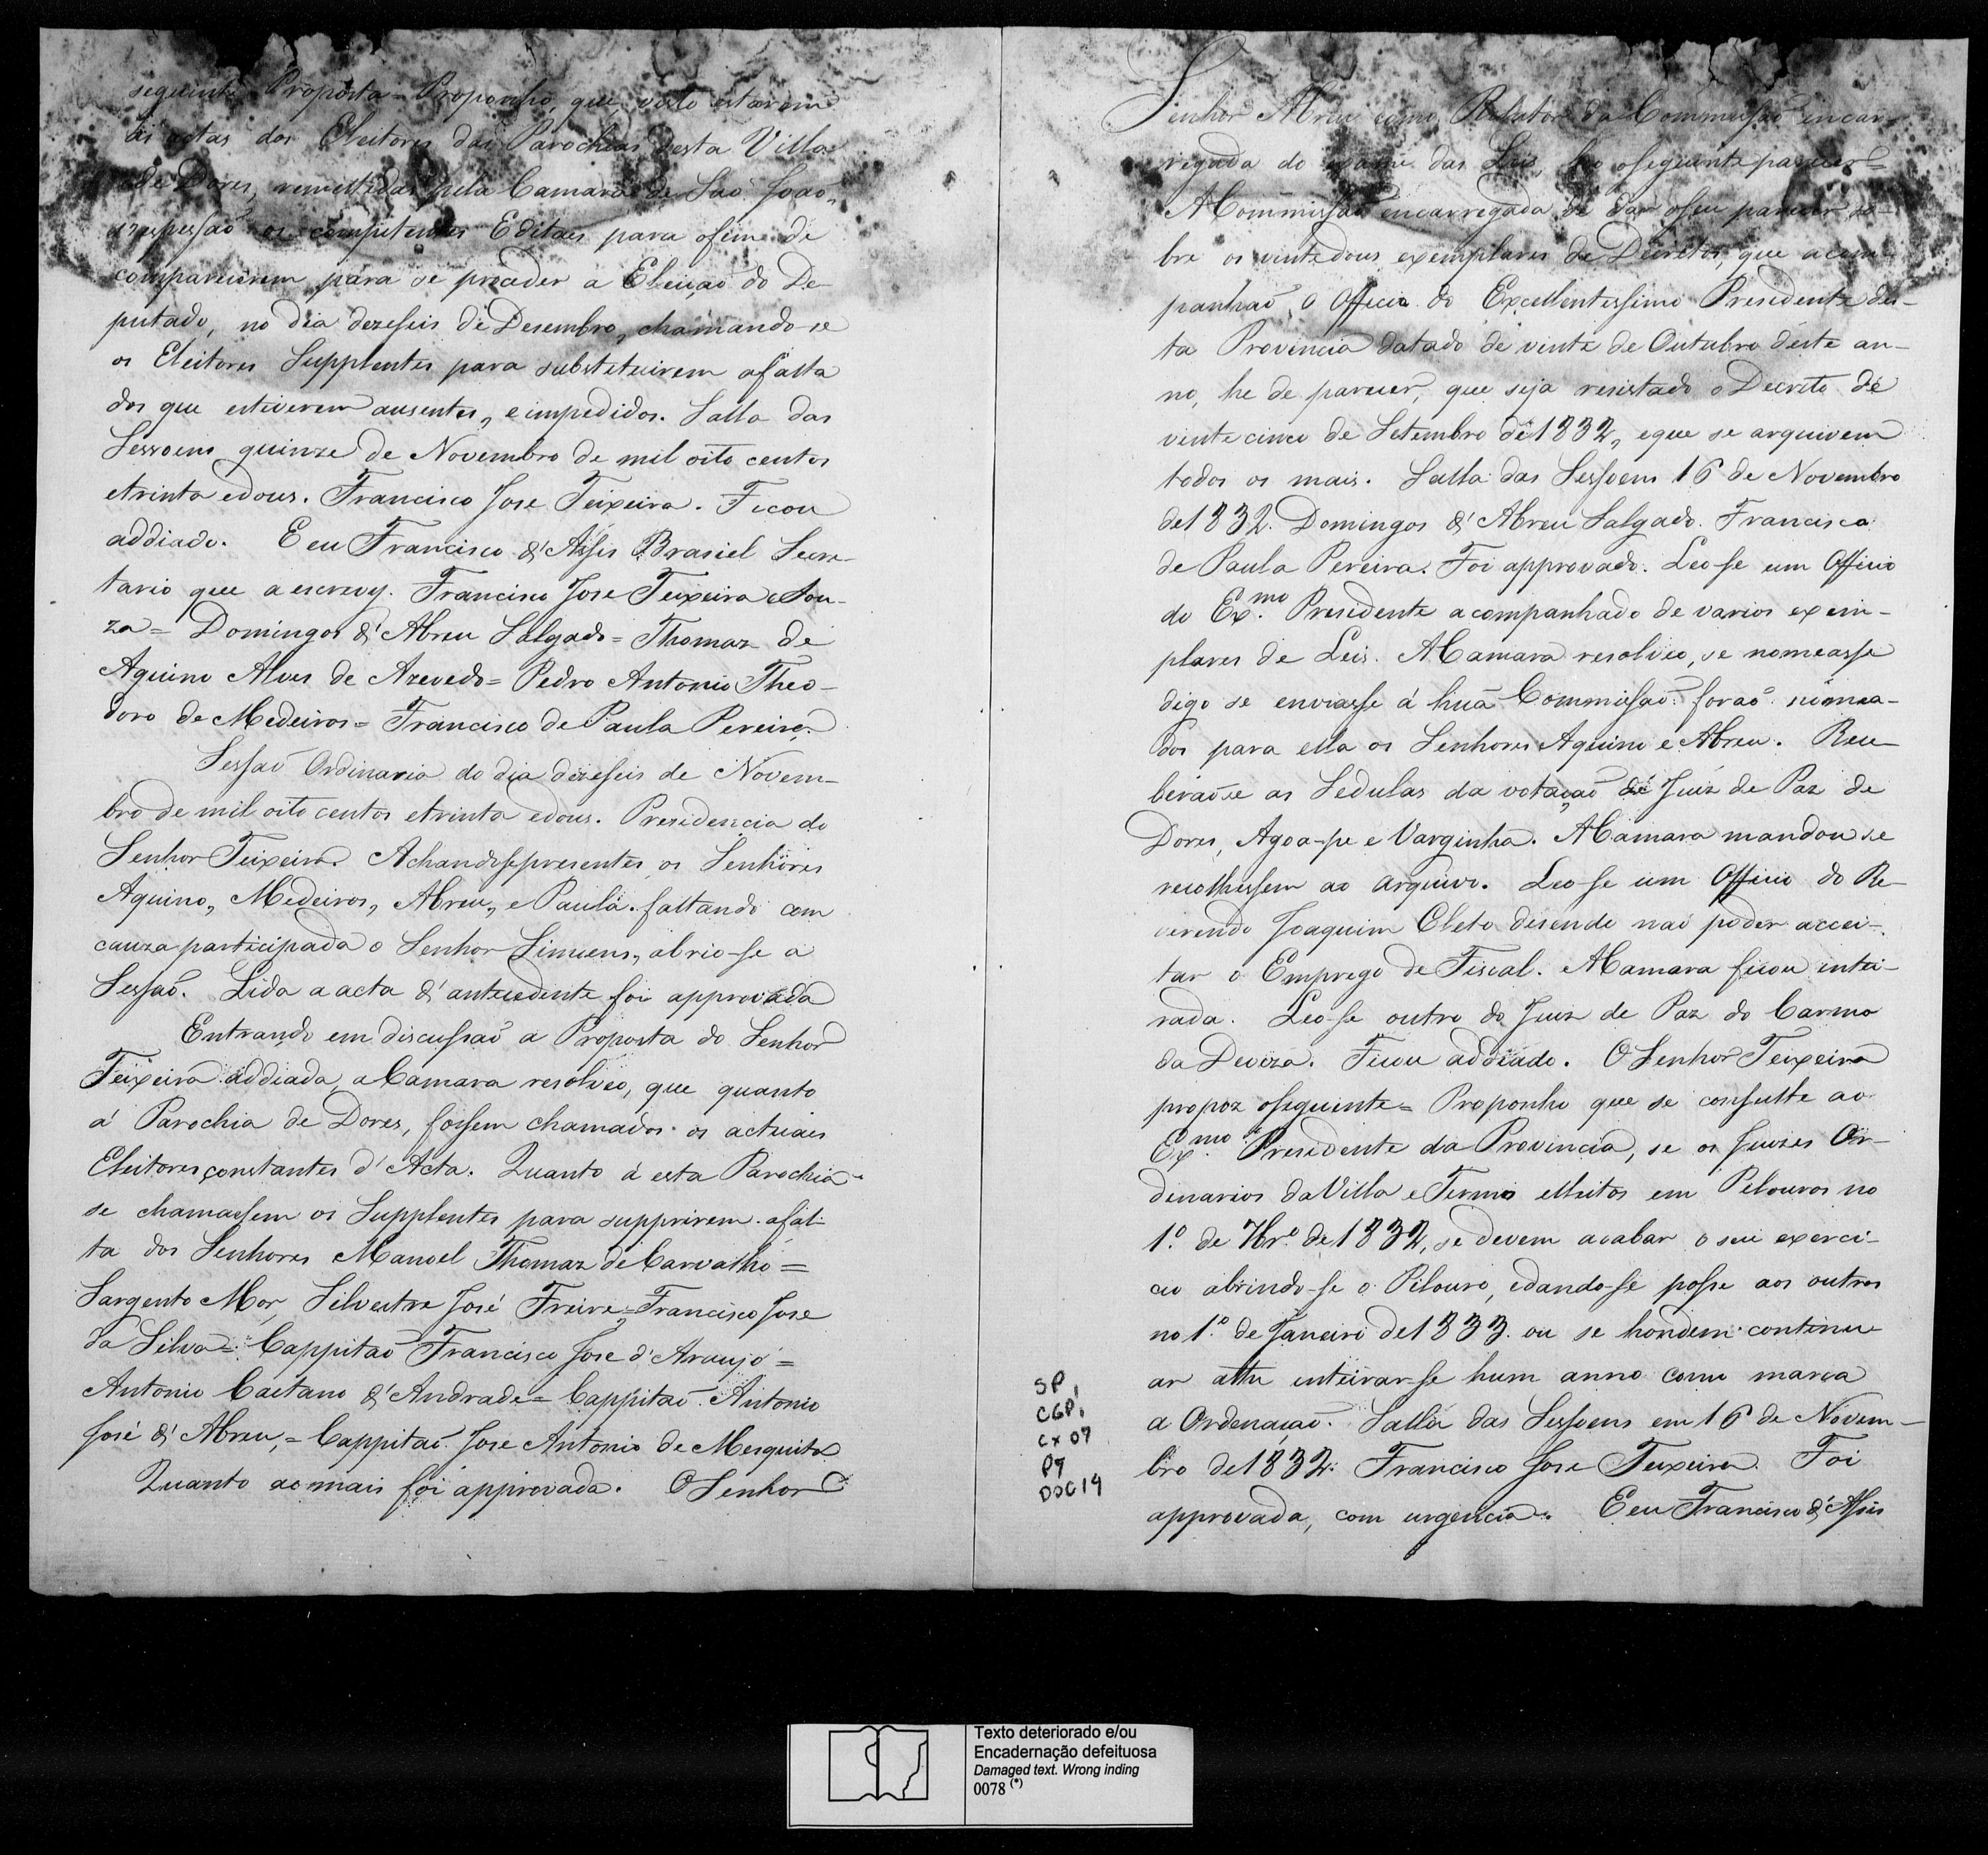 seguinte Proposta = Proponho, que, visto estarem
as actas dos Eleitores das Parochias desta Villa
e de Dores, remettidas pela Camara de Saõ Joaõ,
os competentes Editaes para ofim de
comparecerem para se proceder a Eleiçaõ do De-
putado, no dia dezeseis de Desembro, chamando-se
os Eleitores Supplentes para substetuirem afalta
dos que estiverem ausentes, e impedidos. Salla das
Sessoens quinze de Novembro de mil oito centos
etrinta edous. Francisco Jose Teixeira. Ficou
addiado. E eu Francisco d'Assis Brasiel Secre-
tario que a escrevy. Francisco Jose Teixeira e Sou-
za = Domingos d'Abreu Salgado = Thomaz de
Aquino Alves de Azevedo = Pedro Antonio Theo-
doro de Medeiros = Francisco de Paula Pereira.
Sessaõ Ordinaria do dia dezeseis de Novem-
bro de mil oito centos etrinta edous. Presidencia do
Senhor Teixeira. Achandosepresentes os Senhores
Aquino, Medeiros, Abreu, e Paula. faltando com
cauza participada o Senhor Simoens, abrio-se a
Sessaõ. Lida a acta d'antecedente foi approvada
Entrando em discussaõ a Proposta do Senhor
Teixeira addiada, a Camara resolveo, que quanto
á Parochia de Dores, fossem chamados os actuaes
Eleitores constantes d'Acta. Quanto á esta Parochia
se chamassem os Supplentes para supprirem afal-
ta dos Senhores Manoel Thomaz de Carvalho =
Sargento Mor, Silvestre José Freire = Francisco Jose
da Silva = Cappitaõ Francisco Jose d'Araujo =
Antonio Caetano d'Andrade = Cappitaõ Antonio
José d'Abreu, = Cappitaõ Jose Antonio de Mesquita
Quanto aomais foi approvada. O Senhor
Senhor Abreu como Relator da Commissaõ encar-
regada do exame das Leis, leo oseguinteparecer =
A Commissaõ encarregada de dar oseu parecer so-
bre os vintedous exemplares de Decretos, que acom-
panhaõ o Officio do Excellentissimo Presidente des-
ta Provincia datado de vinte de Outubro deste an-
no, he de parecer, que seja resistado o Decreto de
vinte cinco de Setembro de 1832, eque se arquivem
todos os mais. Salla das Sessoens 16 de Novembro
de 1832. Domingos d'Abreu Salgado. Francisco
de Paula Pereira. Foi approvado. Leo-se um Officio
do Ex.mo Presidente acompanhado de varios exem-
plares de Leis. A Camara resolveo, se nomeasse
digo se enviasse á huã Commissaõ: foraõ nomea-
dos para ella os Senhores Aquino e Abreu. Rece-
beraõse as Sedulas da votaçaõ de Juiz de Paz de
Dores, Agoa-pe e Varginha. A Camara mandou se
recolhessem ao arquivo. Leo-se um Officio do Re-
verendo Joaquim Cleto disendo naõ poder accei-
tar o Emprego de Fiscal. A Camara ficou intei-
rada. Leo-se outro do Juiz de Paz do Carmo
da Deviza. Ficou addiado. O Senhor Teixeira
propoz oseguinte = Proponho que se consulte ao
Ex.mo Presidente da Provincia, se os Juizes Or-
dinarios da Villa e Termo elleitos em Pelouros no
1.º de 7br.º de 1832, se devem acabar o seu exerci-
cio abrindo-se o Pilouro, edando-se posse aos outros
no 1.º de Janeiro de 1833. ou se hondem continu
ar athe inteirar-se hum anno como marca
a Ordenaçaõ. Salla das Sessoens em 16 de Novem-
bro de 1832. Francisco Jose Teixeira. Foi
approvada, com urgencia. E eu Francisco d'Assis
SP
CGP1
CX 07
P9
DOC 14
Texto deteriorado e/ou
Encadernação defeituosa
Damaged text. Wrong inding
0078 (*)